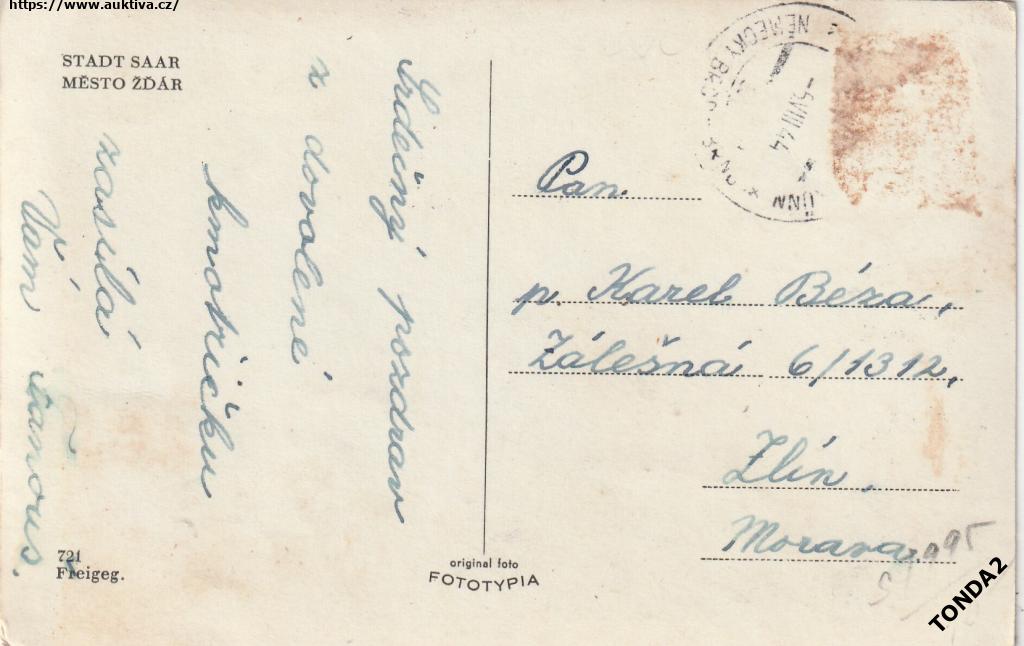 https://www.auktiva.cz/
STADT SAAR
MĚSTO ŽĎÁR
Srdečný pozdrav
z dovolené
kmotříčku
zasílá
Vám
721
Freigeg.
original foto
FOTOTYPIA
NĚMECKÝ BROD
-5.VIII.44
Pan.
p. Karel Béza,
Zálešná 6/1312,
Zlín,
Morava.
TONDA2